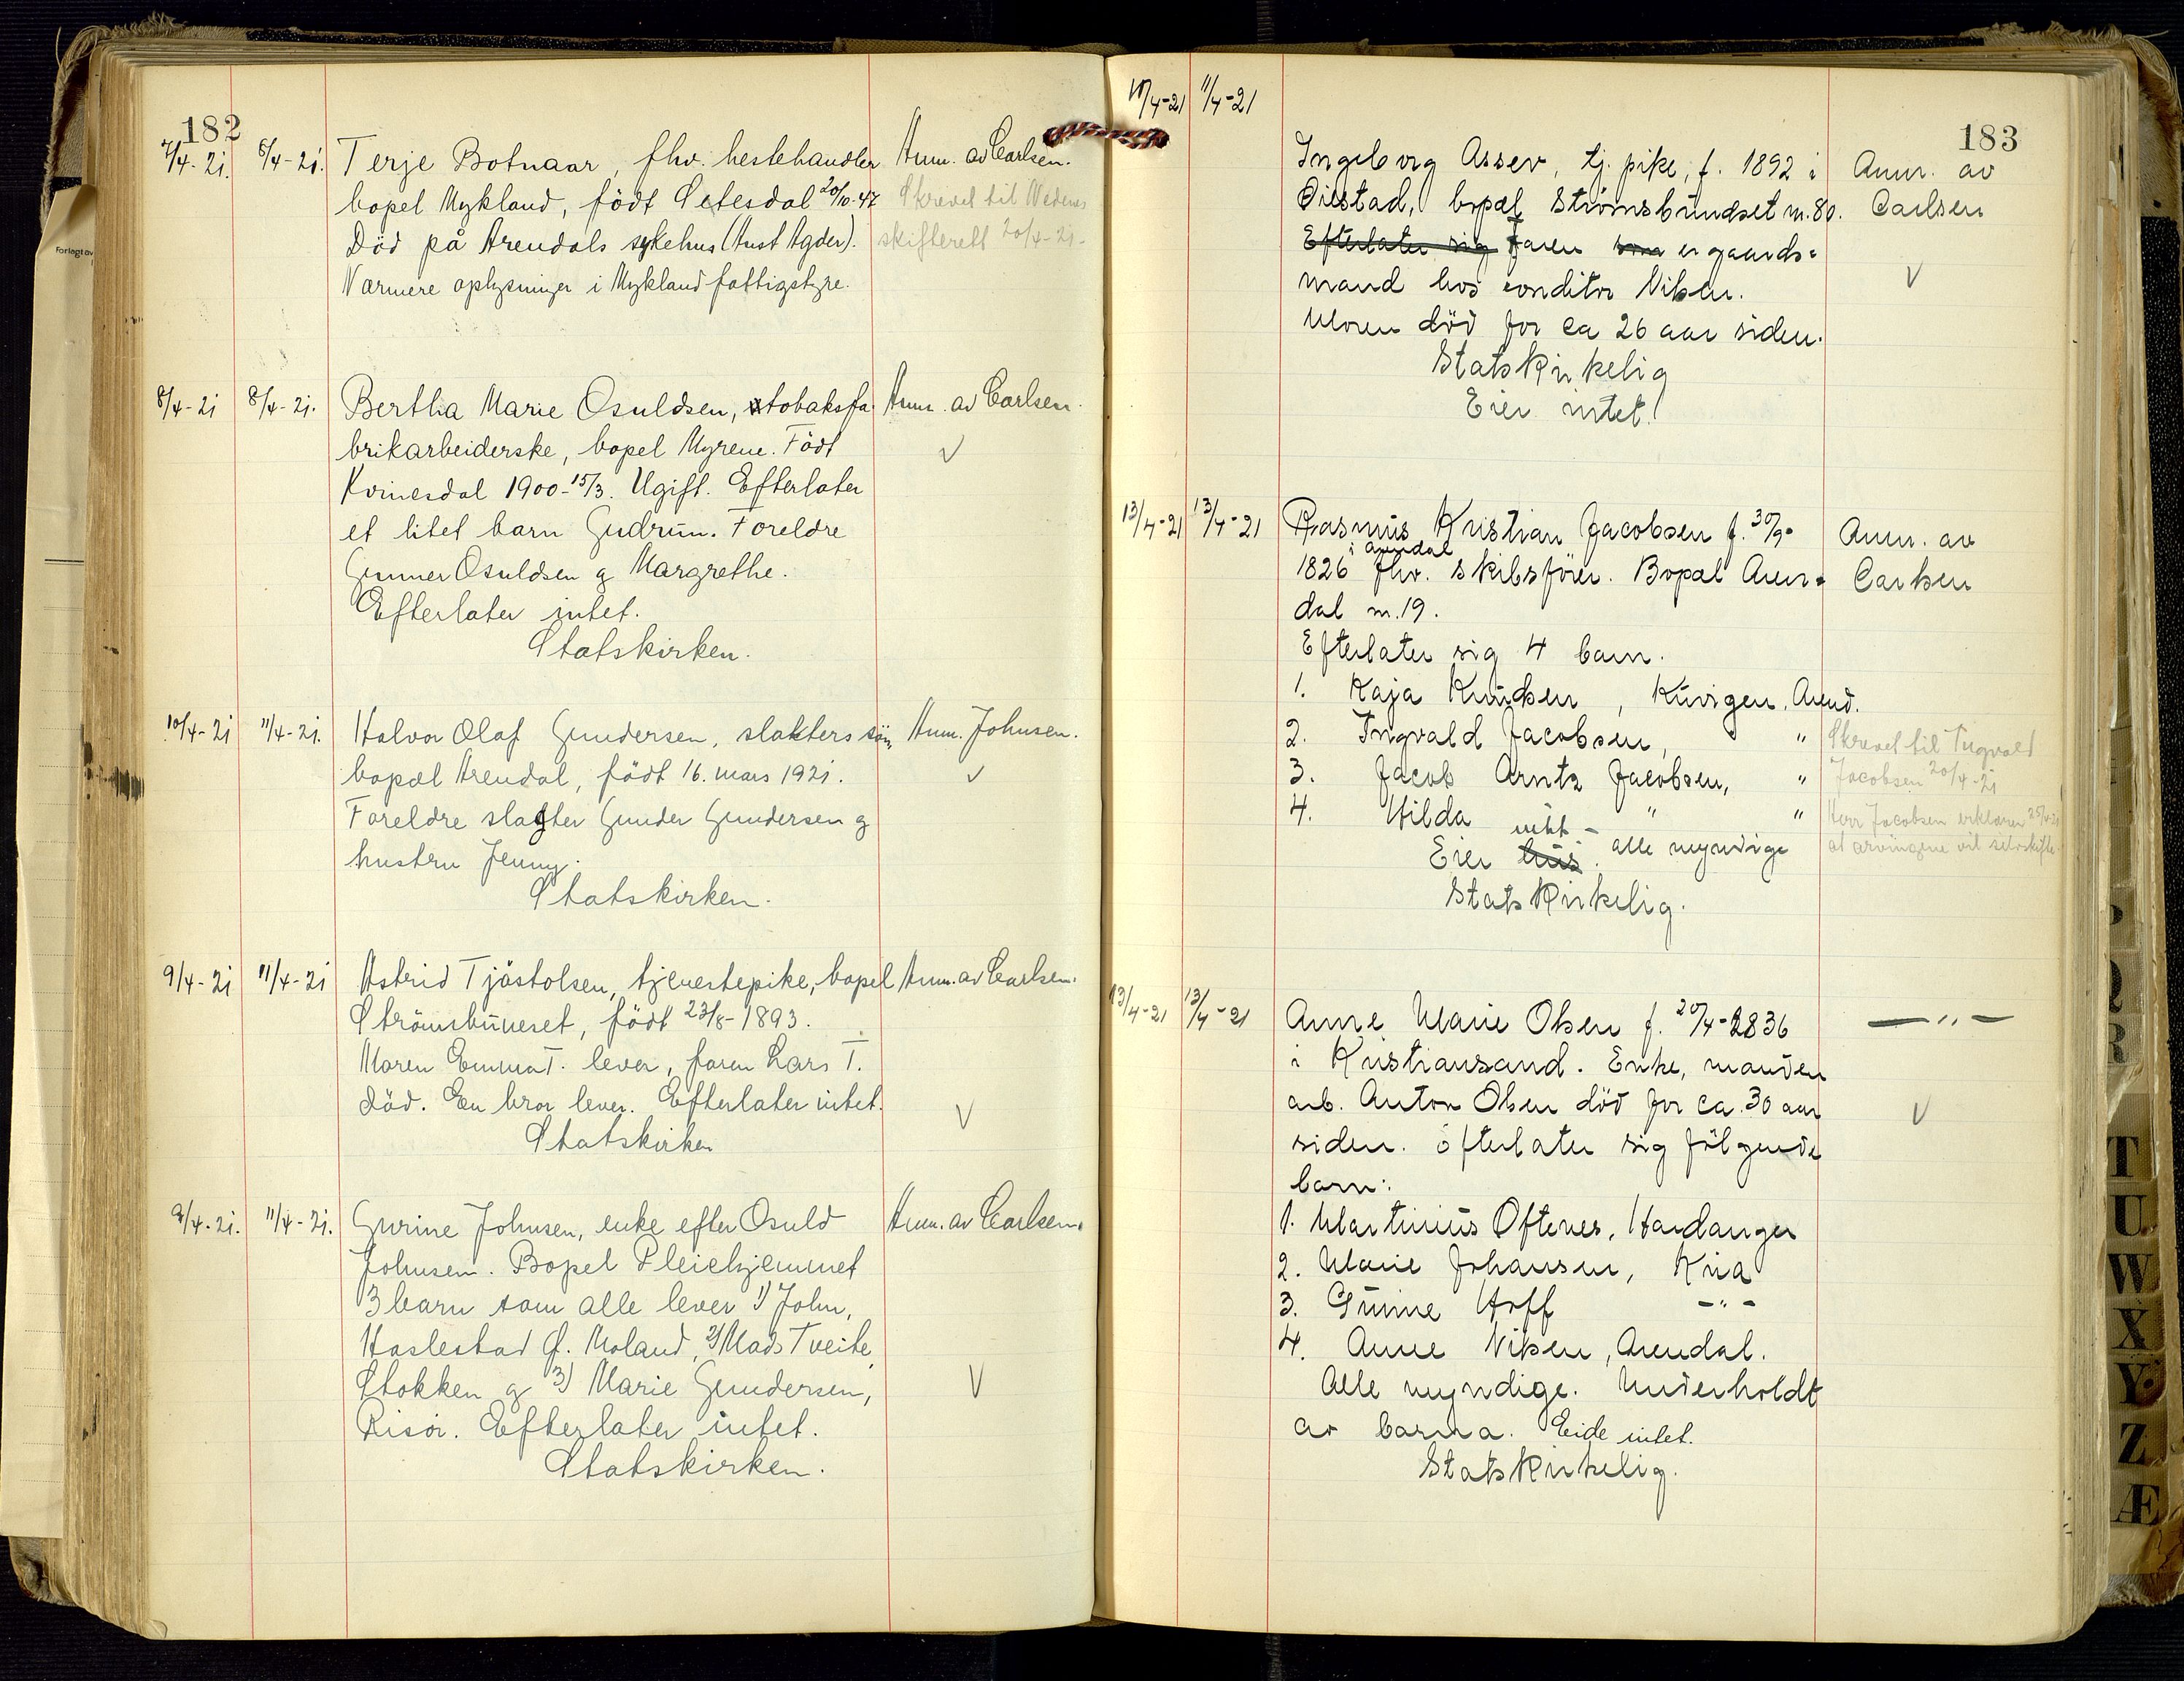 182
7/4-21. 8/4-21. Terje Botnaar, fhv. hestehandler Anm. av Carlsen.
bopel Mykland, født Setesdal 20/10-47 Skrevet til Nedenes
Død på Arendals sykehus (Aust Agder). skifterett 20/4-21-
Nærmere oplysninger i Mykland fattigstyre.
8/4-21 8/4-21. Bertha Marie Osuldsen, tobaksfa Anm. av Carlsen.
brikarbeiderske, bopel Myrene. Født
Kvinesdal 1900-15/3. Ugift. Efterlater
et litet barn Gudrun. Foreldre
Gunner Osuldsen og Margrethe.
Efterlater intet.
Statskirken.
10/4-21 11/4-21. Halvor Olaf Gundersen, slakters søn, Anm. Johnsen.
bopæl Arendal, født 16. mars 1921.
Foreldre slagter Gunder Gundersen og
hustru Jenny.
Statskirken.
9/4-21 11/4-21 Astrid Tjøstolsen, tjenestepike, bopel Anm. av Carlsen.
Strømsbuneset, født 23/8-1893.
Moren Emma T. lever, faren Lars T.
død. En bror lever. Efterlater intet.
Statskirken
9/4-21. 11/4-21. Gurine Johnsen, enke efter Osuld Anm. av Carlsen.
Johnsen. Bopel Pleiehjemmet
3 barn som alle lever 1) John,
Haslestad Ø. Moland, 2) Mads Tveite,
Stokken og 3) Marie Gundersen,
Risør. Efterlater intet.
Statskirken.
183
11/4-21 11/4-21
Ingeborg Assev, tj. pike, f. 1892 i Anm. av
Øiestad, bopæl Strømsbundset m. 80. Carlsen
Efterlater sig Faren som er gaards-
mand hos conditor Nilsen.
Moren død for ca 26 aar siden.
Statskirkelig
Eier intet.
13/4-21 13/4-21 Rasmus Kristian Jacobsen f. 30/9- Anm. av
i Arendal
1826 fhv. skibsfører. Bopæl Aren- Carlsen
dal m. 19.
Efterlater sig 4 barn.
1. Kaja Knudsen, Kuvigen, Arend.
2. Ingvald Jacobsen, " Skrevet til Ingvald
3. Jacob Arntz Jacobsen, " Jacobsen 20/4-21
4. Hilda " " Herr Jacobsen erklærer 25/4-21
intet - alle myndige at arvingene vil selvskifte.
Eier hus.
Statskirkelig.
13/4-21 13/4-21 Anne Marie Olsen f. 20/4-1836 — " —
i Kristiansand. Enke, manden
arb. Anton Olsen død for ca. 30 aar
siden. Efterlater sig følgende
barn:
1. Martinius Oftenes, Hardanger
2. Marie Johansen, Kria
3. Gunine Hoff - " -
4. Anne Nilsen, Arendal.
Alle myndige. Underholdt
av barna. Eide intet.
Statskirkelig.
T
U
W
X
Y
Z
Æ